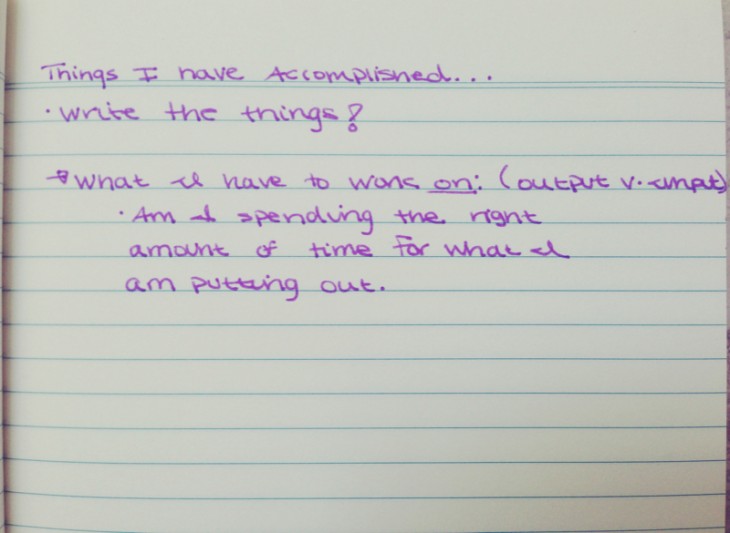 Things I have Accomplished...
· Write the things?
→ What I have to work on: (output v. input)
· Am I spending the right
amount of time for what I
am putting out.